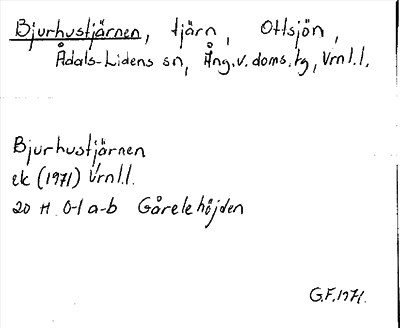 Bjurhustjärnen, tjärn, Ottsjön,
Ådals-Lidens sn, Ång.v.doms.tg, Vrnl.l.
Bjurhustjärnen
ek (1971) Vrnl.l.
20 H 0-1 a-b Gårelehöjden
G.F. 1971.